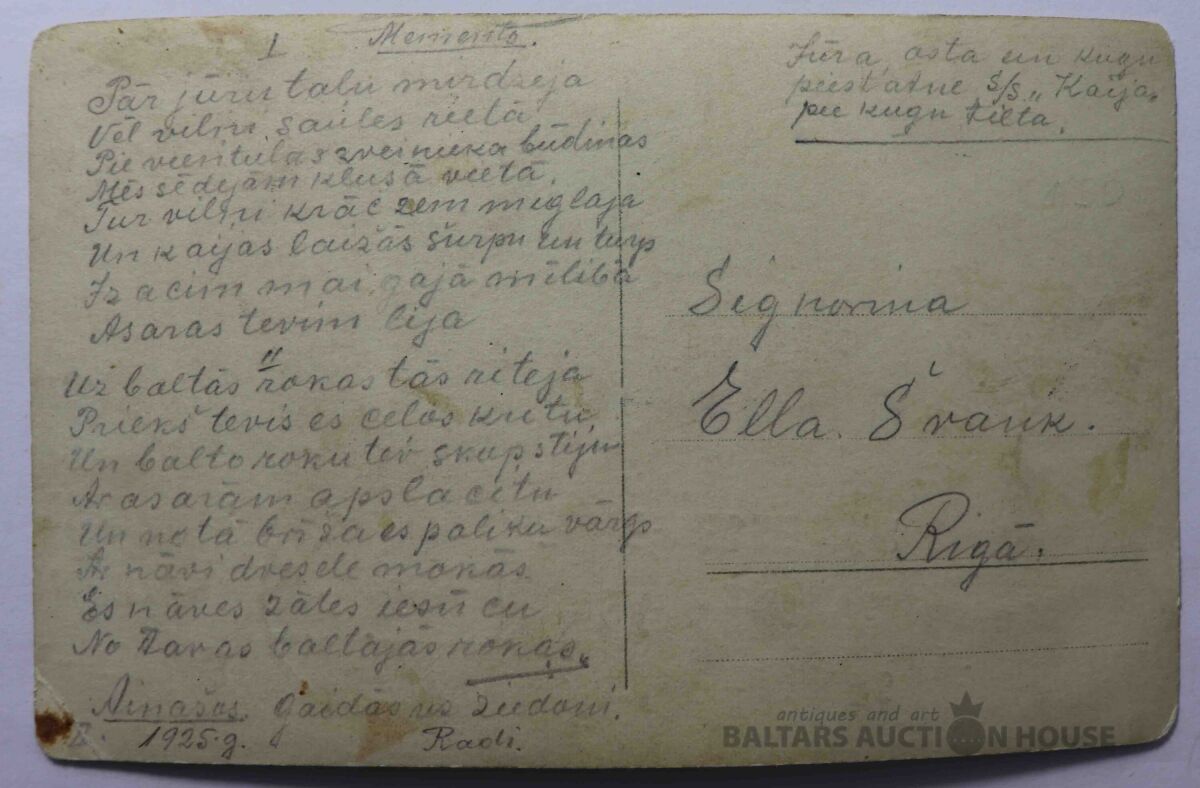 Memento.
I
Pār jūru talu mirdzeja
Vēl vilni saules rietā
Pie vientulas zveineeka būdinas
Mēs sēdejām klusā vietā,
Tur vilni krāc zem miglaja
Un kaijas laižās šurpu un turp
Iz acim mai gajā mīlibā
Asaras tevim lija
II
Uz baltās rokas tās riteja
Priekš tevis es celos kritu
Un balto roku tev skupstiju
Ar asarām apslacitu
Un no tā briža es paliku vārgs
Ar nāvi dvesele mokās
Es nāves zāles iesūcu
No Tavas baltajās rokas."
Ainažos. Gaidās uz ziedoni.
II. 1925.g. Radi.
Jūra, osta un kugu
piestatne S/S „Kaija„
pie kugu tilta.
Signorina
Ella. Švank.
Rigā.
antiques and art
BALTARS AUCTION HOUSE